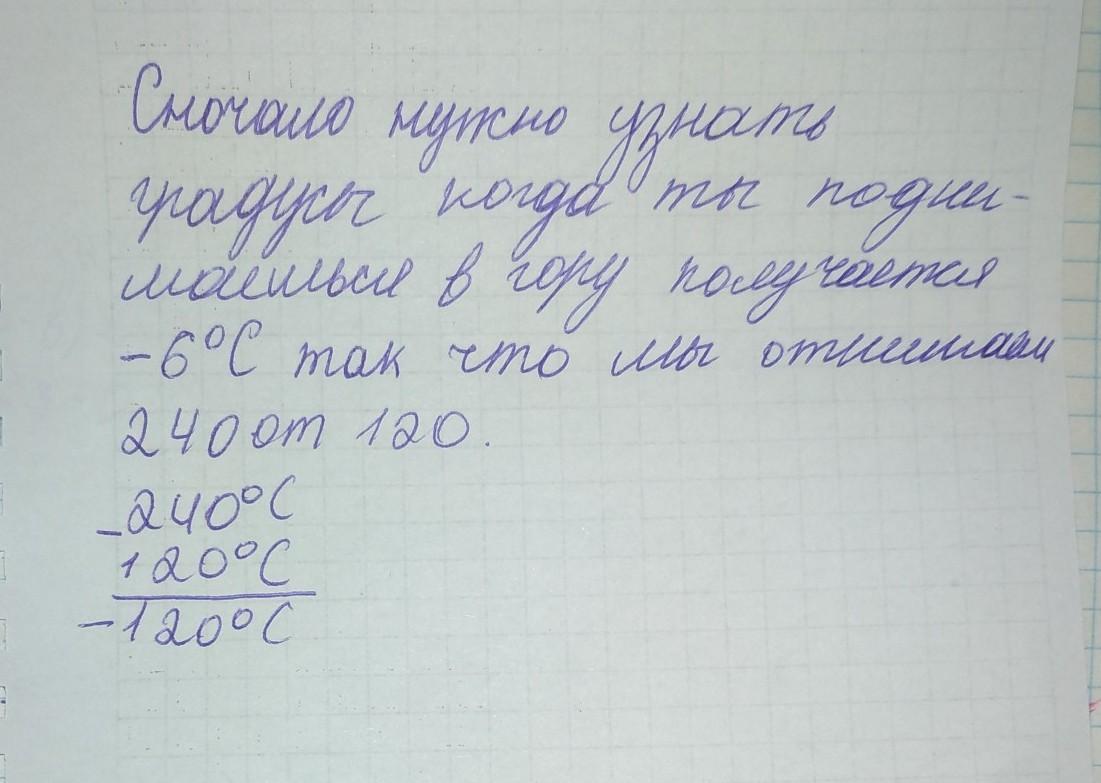 Сночало нужно узнать
градусы когда ты подни-
маешься в гору получается
-6°С так что мы отнимаем
240 от 120.
-240°С
120°С
-120°С